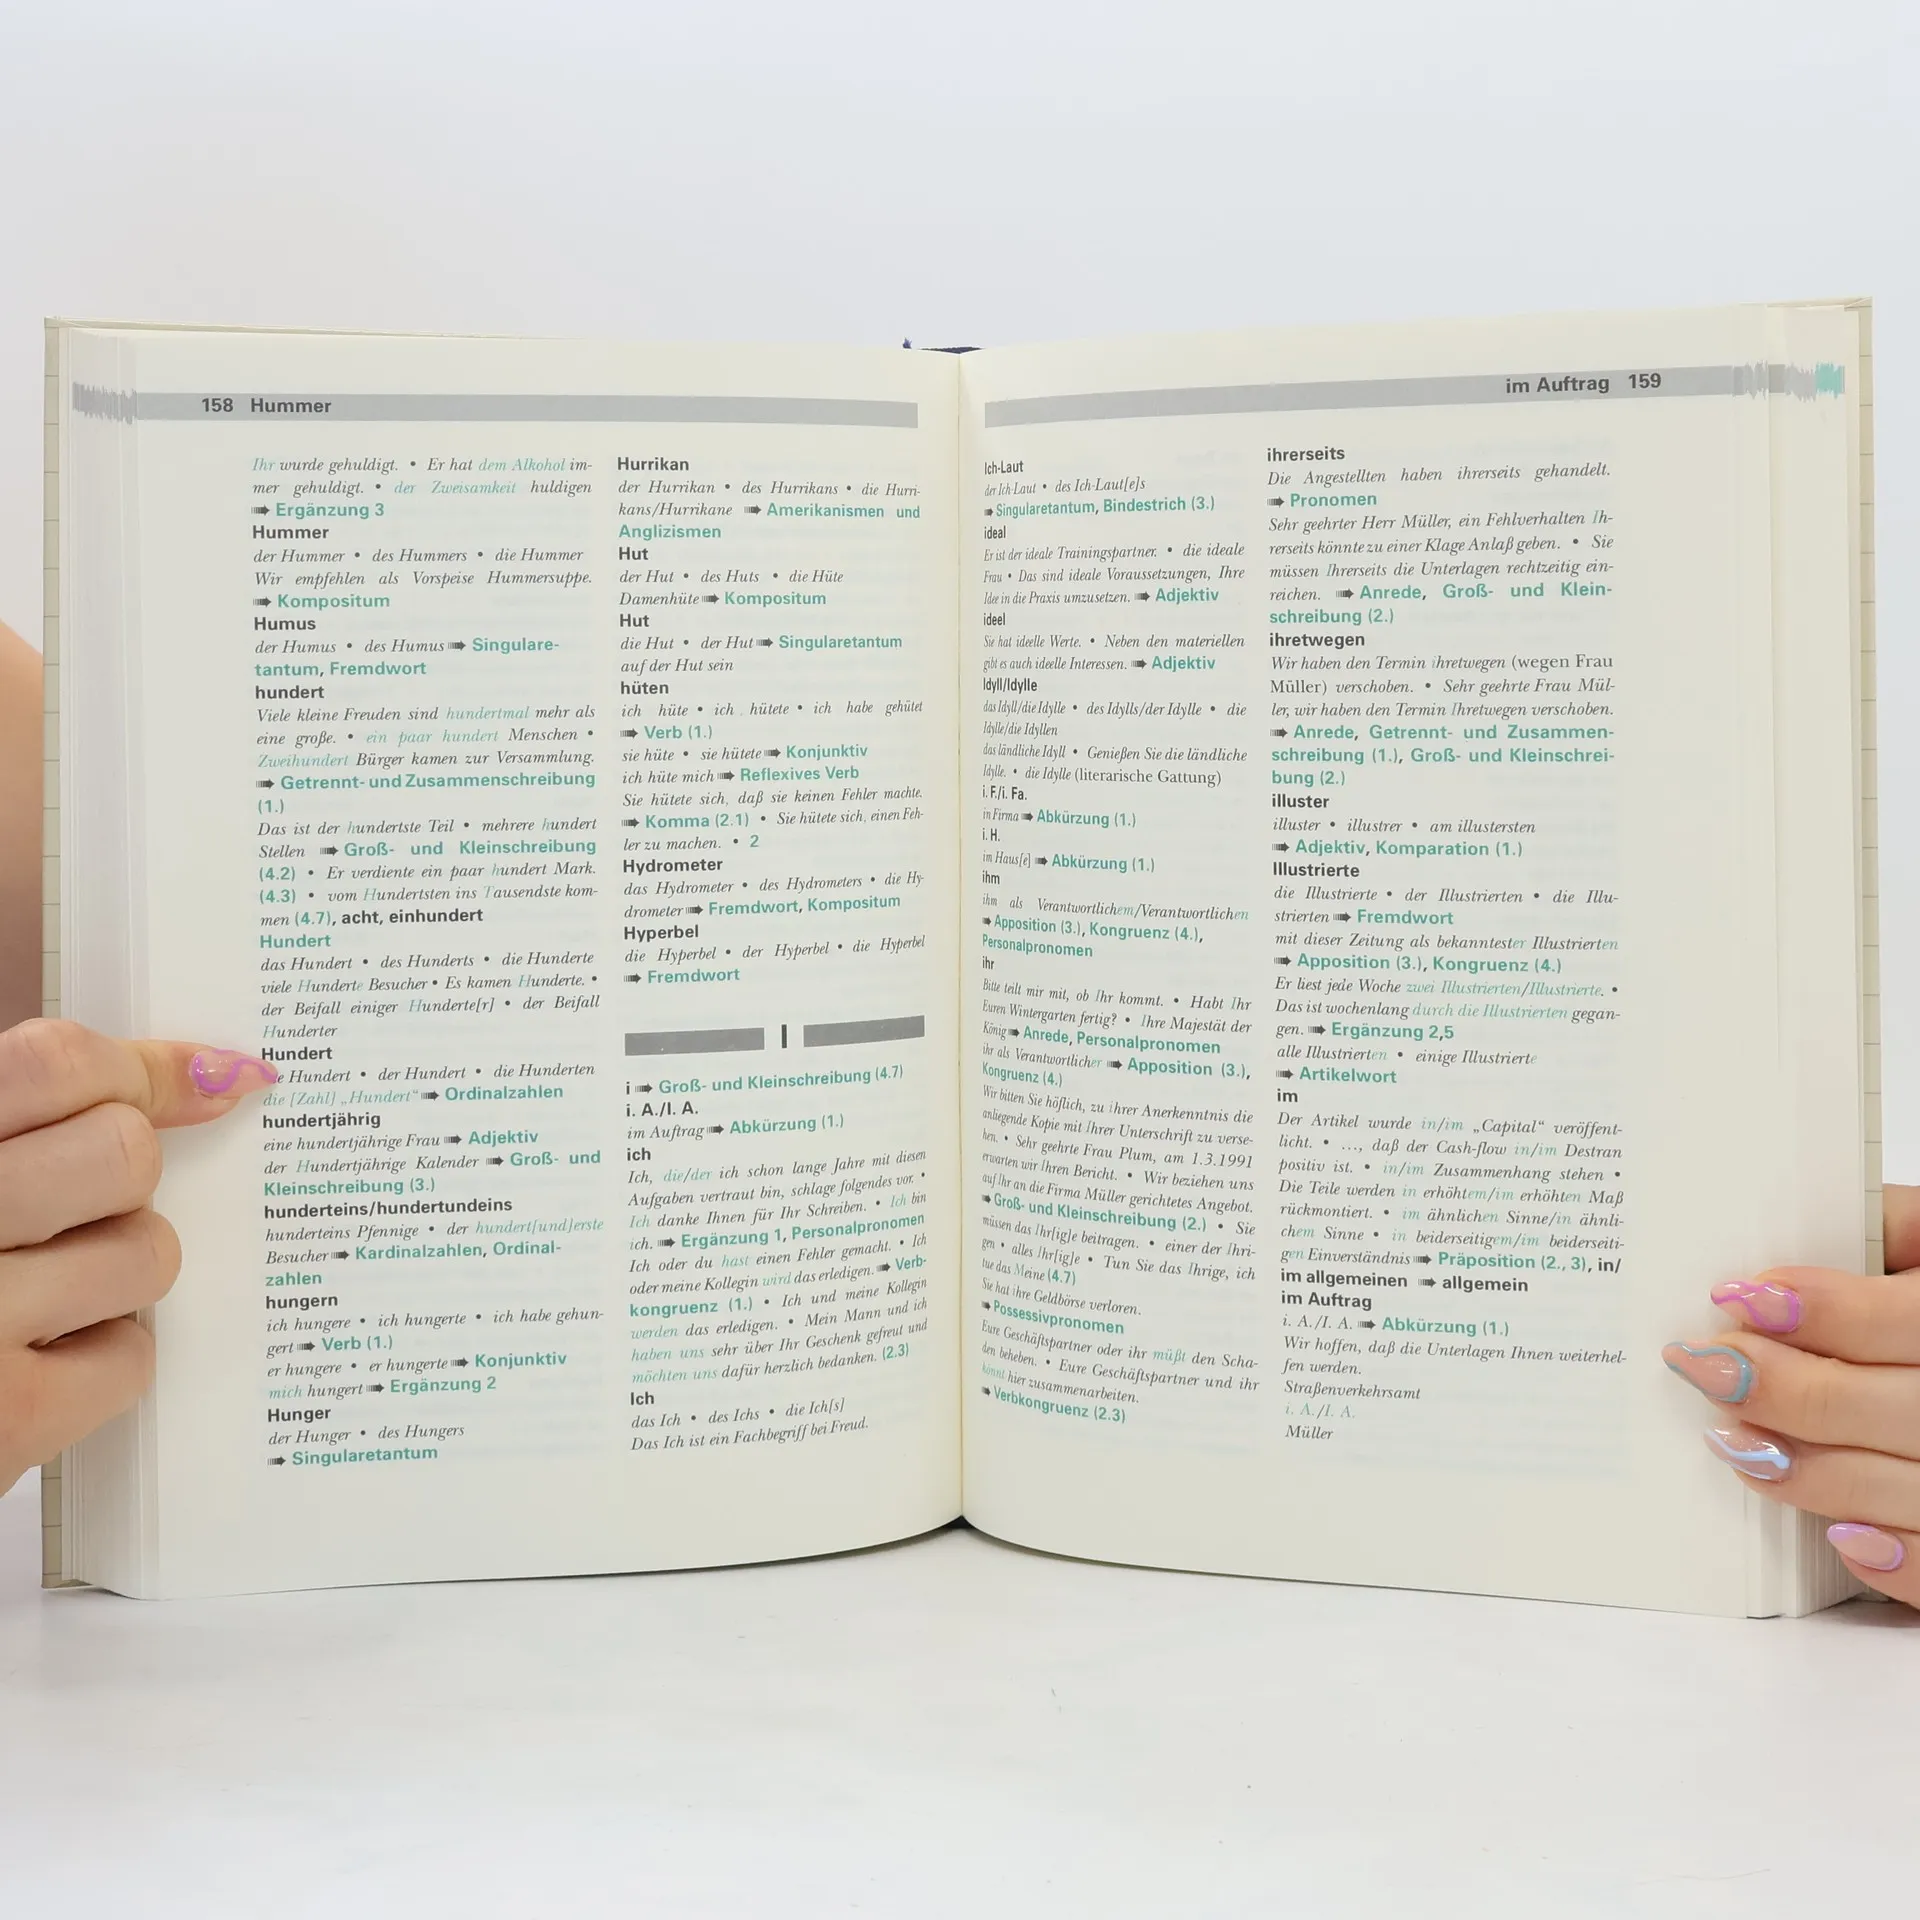 158 Hummer
Ihr wurde gehuldigt. • Er hat dem Alkohol im-
mer gehuldigt. • der Zweisamkeit huldigen
➠ Ergänzung 3
Hummer
der Hummer • des Hummers • die Hummer
Wir empfehlen als Vorspeise Hummersuppe.
➠ Kompositum
Humus
der Humus • des Humus ➠ Singulare-
tantum, Fremdwort
hundert
Viele kleine Freuden sind hundertmal mehr als
eine große. • ein paar hundert Menschen •
Zweihundert Bürger kamen zur Versammlung.
➠ Getrennt- und Zusammenschreibung
(1.)
Das ist der hundertste Teil • mehrere hundert
Stellen ➠ Groß- und Kleinschreibung
(4.2) • Er verdiente ein paar hundert Mark.
(4.3) • vom Hundertsten ins Tausendste kom-
men (4.7), acht, einhundert
Hundert
das Hundert • des Hunderts • die Hunderte
viele Hunderte Besucher • Es kamen Hunderte. •
der Beifall einiger Hunderte[r] • der Beifall
Hunderter
Hundert
e Hundert • der Hundert • die Hunderten
die [Zahl] „Hundert“ ➠ Ordinalzahlen
hundertjährig
eine hundertjährige Frau ➠ Adjektiv
der Hundertjährige Kalender ➠ Groß- und
Kleinschreibung (3.)
hunderteins/hundertundeins
hunderteins Pfennige • der hundert[und]erste
Besucher ➠ Kardinalzahlen, Ordinal-
zahlen
hungern
ich hungere • ich hungerte • ich habe gehun-
gert ➠ Verb (1.)
er hungere • er hungerte ➠ Konjunktiv
mich hungert ➠ Ergänzung 2
Hunger
der Hunger • des Hungers
➠ Singularetantum
Hurrikan
der Hurrikan • des Hurrikans • die Hurri-
kans/Hurrikane ➠ Amerikanismen und
Anglizismen
Hut
der Hut • des Huts • die Hüte
Damenhüte ➠ Kompositum
Hut
die Hut • der Hut ➠ Singularetantum
auf der Hut sein
hüten
ich hüte • ich hütete • ich habe gehütet
➠ Verb (1.)
sie hüte • sie hütete ➠ Konjunktiv
ich hüte mich ➠ Reflexives Verb
Sie hütete sich, daß sie keinen Fehler machte.
➠ Komma (2.1) • Sie hütete sich, einen Feh-
ler zu machen. • 2
Hydrometer
das Hydrometer • des Hydrometers • die Hy-
drometer ➠ Fremdwort, Kompositum
Hyperbel
die Hyperbel • der Hyperbel • die Hyperbel
➠ Fremdwort
I
i ➠ Groß- und Kleinschreibung (4.7)
i. A./I. A.
im Auftrag ➠ Abkürzung (1.)
ich
Ich, die/der ich schon lange Jahre mit diesen
Aufgaben vertraut bin, schlage folgendes vor. •
Ich danke Ihnen für Ihr Schreiben. • Ich bin
ich. ➠ Ergänzung 1, Personalpronomen
Ich oder du hast einen Fehler gemacht. • Ich
oder meine Kollegin wird das erledigen. ➠ Verb-
kongruenz (1.) • Ich und meine Kollegin
werden das erledigen. • Mein Mann und ich
haben uns sehr über Ihr Geschenk gefreut und
möchten uns dafür herzlich bedanken. (2.3)
Ich
das Ich • des Ichs • die Ich[s]
Das Ich ist ein Fachbegriff bei Freud.
im Auftrag 159
Ich-Laut
der Ich-Laut • des Ich-Laut[e]s
➠ Singularetantum, Bindestrich (3.)
ideal
Er ist der ideale Trainingspartner. • die ideale
Frau • Das sind ideale Voraussetzungen, Ihre
Idee in die Praxis umzusetzen. ➠ Adjektiv
ideel
Sie hat ideelle Werte. • Neben den materiellen
gibt es auch ideelle Interessen. ➠ Adjektiv
Idyll/Idylle
das Idyll/die Idylle • des Idylls/der Idylle • die
Idylle/die Idyllen
das ländliche Idyll • Genießen Sie die ländliche
Idylle. • die Idylle (literarische Gattung)
i. F./i. Fa.
in Firma ➠ Abkürzung (1.)
i. H.
im Haus[e] ➠ Abkürzung (1.)
ihm
ihm als Verantwortlichem/Verantwortlichen
➠ Apposition (3.), Kongruenz (4.),
Personalpronomen
ihr
Bitte teilt mir mit, ob Ihr kommt. • Habt Ihr
Euren Wintergarten fertig? • Ihre Majestät der
König ➠ Anrede, Personalpronomen
ihr als Verantwortlicher ➠ Apposition (3.),
Kongruenz (4.)
Wir bitten Sie höflich, zu ihrer Anerkenntnis die
anliegende Kopie mit Ihrer Unterschrift zu verse-
hen. • Sehr geehrte Frau Plum, am 1.3.1991
erwarten wir Ihren Bericht. • Wir beziehen uns
auf Ihr an die Firma Müller gerichtetes Angebot.
➠ Groß- und Kleinschreibung (2.) • Sie
müssen das Ihr[ig]e beitragen. • einer der Ihri-
gen • alles Ihr[ig]e • Tun Sie das Ihrige, ich
tue das Meine (4.7)
Sie hat ihre Geldbörse verloren.
➠ Possessivpronomen
Eure Geschäftspartner oder ihr müßt den Scha-
den beheben. • Eure Geschäftspartner und ihr
könnt hier zusammenarbeiten.
➠ Verbkongruenz (2.3)
ihrerseits
Die Angestellten haben ihrerseits gehandelt.
➠ Pronomen
Sehr geehrter Herr Müller, ein Fehlverhalten Ih-
rerseits könnte zu einer Klage Anlaß geben. • Sie
müssen Ihrerseits die Unterlagen rechtzeitig ein-
reichen. ➠ Anrede, Groß- und Klein-
schreibung (2.)
ihretwegen
Wir haben den Termin ihretwegen (wegen Frau
Müller) verschoben. • Sehr geehrte Frau Mül-
ler, wir haben den Termin Ihretwegen verschoben.
➠ Anrede, Getrennt- und Zusammen-
schreibung (1.), Groß- und Kleinschrei-
bung (2.)
illuster
illuster • illustrer • am illustersten
➠ Adjektiv, Komparation (1.)
Illustrierte
die Illustrierte • der Illustrierten • die Illu-
strierten ➠ Fremdwort
mit dieser Zeitung als bekanntester Illustrierten
➠ Apposition (3.), Kongruenz (4.)
Er liest jede Woche zwei Illustrierten/Illustrierte. •
Das ist wochenlang durch die Illustrierten gegan-
gen. ➠ Ergänzung 2,5
alle Illustrierten • einige Illustrierte
➠ Artikelwort
im
Der Artikel wurde in/im „Capital“ veröffent-
licht. • ..., daß der Cash-flow in/im Destran
positiv ist. • in/im Zusammenhang stehen •
Die Teile werden in erhöhtem/im erhöhten Maß
rückmontiert. • im ähnlichen Sinne/in ähnli-
chem Sinne • in beiderseitigem/im beiderseiti-
gen Einverständnis ➠ Präposition (2., 3), in/
im allgemeinen ➠ allgemein
im Auftrag
i. A./I. A. ➠ Abkürzung (1.)
Wir hoffen, daß die Unterlagen Ihnen weiterhel-
fen werden.
Straßenverkehrsamt
i. A./I. A.
Müller